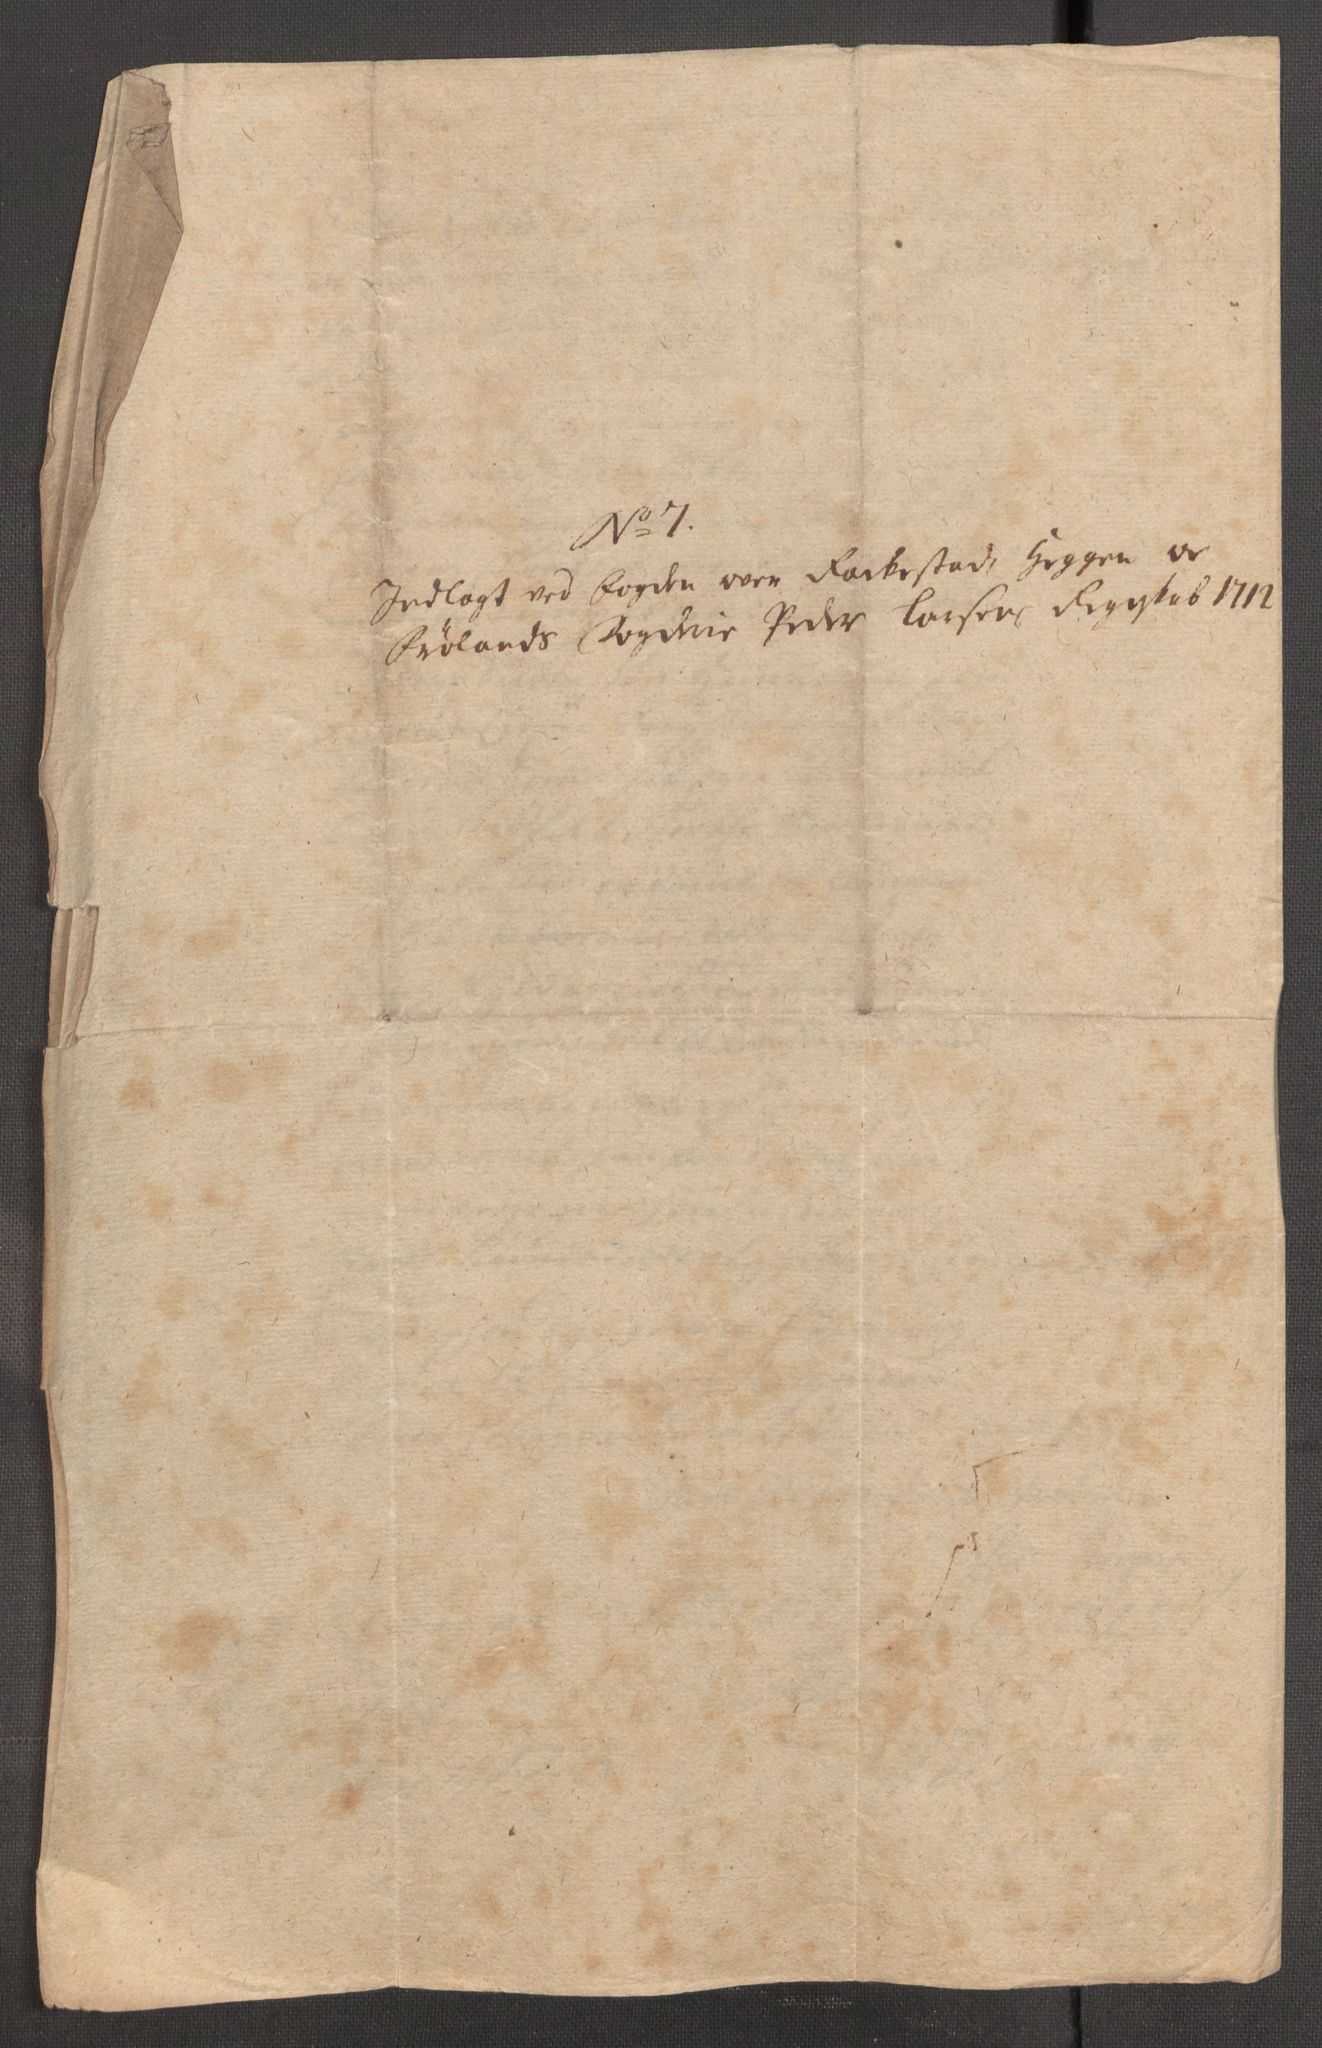 No 7.
Indlagt ved Fogden over Rackestad, Heggen oc
Frølands Fogderie Peder Larsens Regnskab 1712